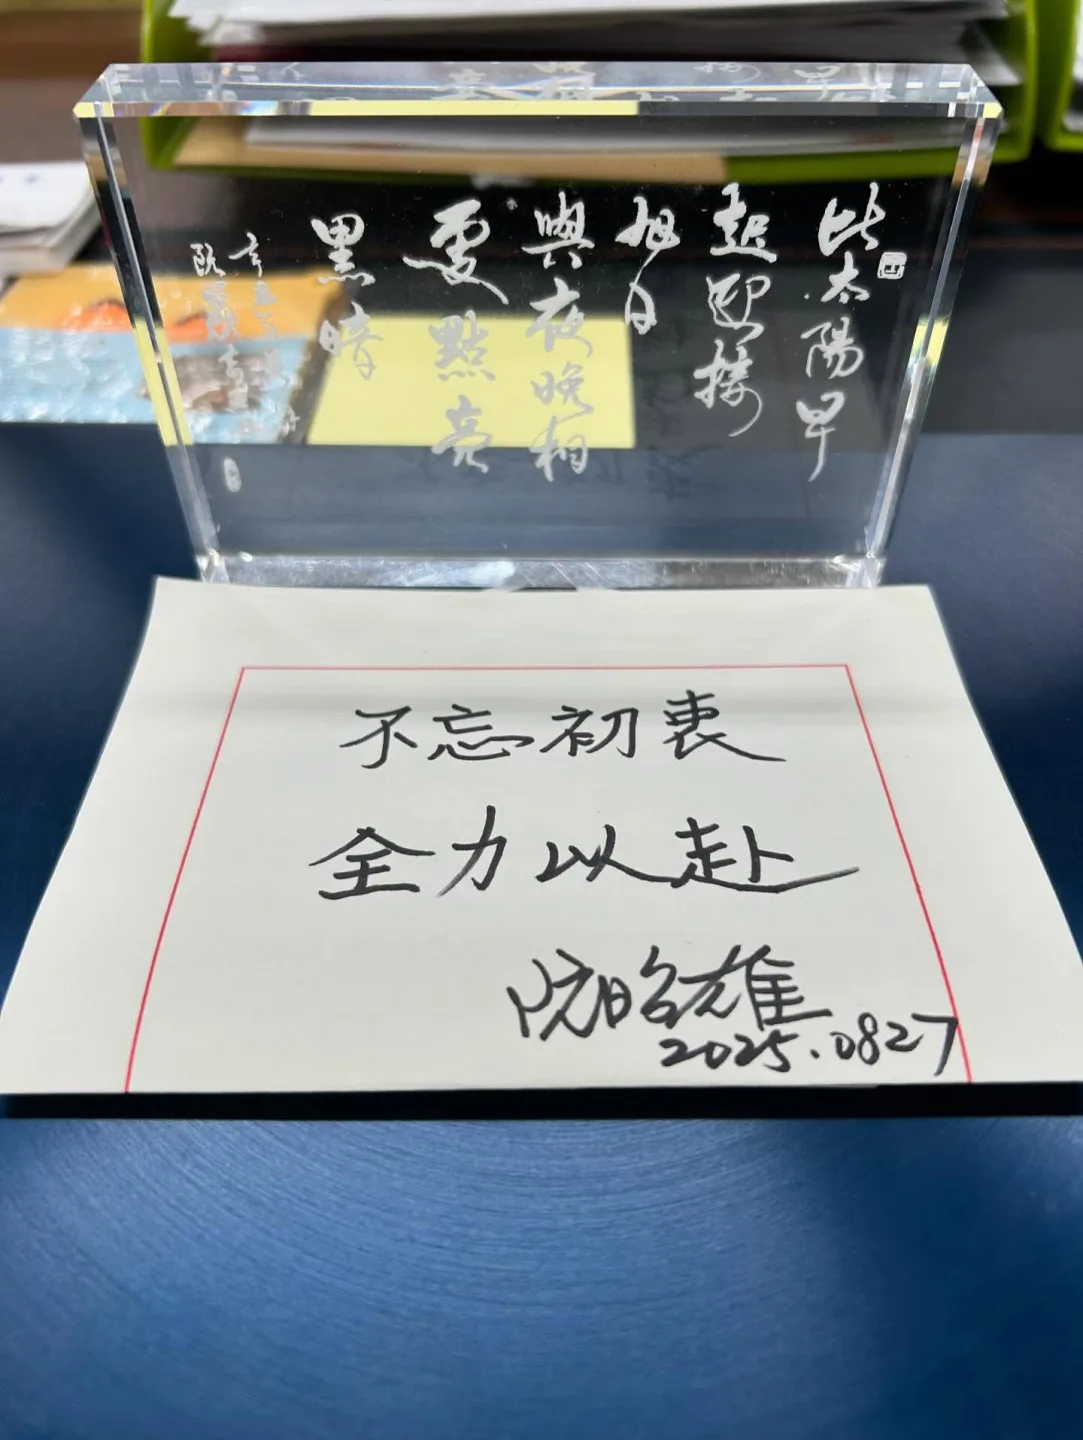 比太陽早
起迎接
旭日
與夜晚相
更點亮
黑暗
不忘初衷
全力以赴
阮昭雄
2025.0827